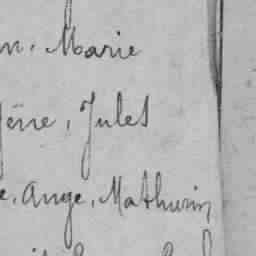 n. Marie
gène, Jules
e. Ange, Mathurin